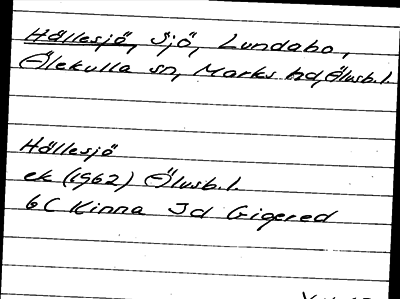 Hällesjö, Sjö, Lundabo,
Älekulla sn, Marks hd, Älvsb. l.
Hällesjö
ek (1962) Älvsb. l.
6C Kinna Jd Gigered